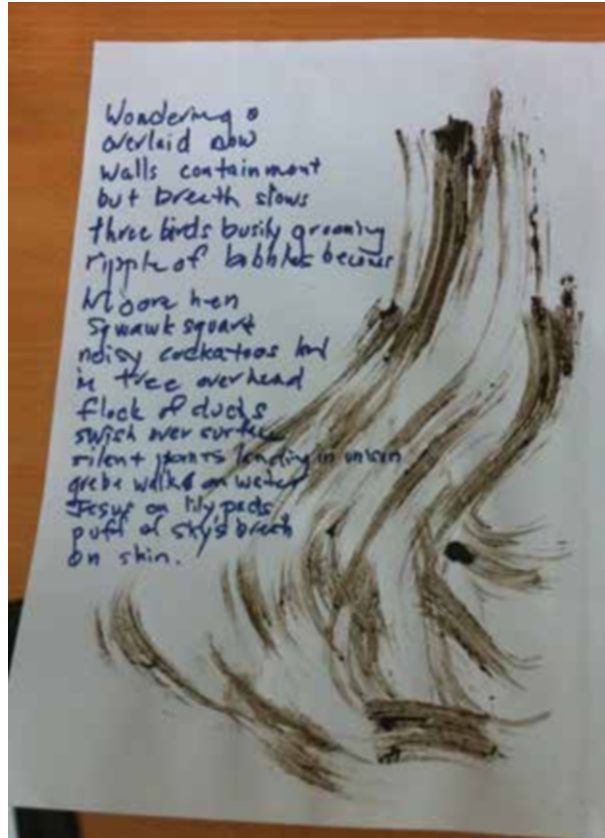 Wondering
overlaid now
walls containment
but breath slows
three birds busily grooming
ripple of bubbles
Moore hen
squawk
noisy cockatoos
in tree overhead
flock of ducks
swish over surface
silent landing in unison
grebe walks on water
Jesus on lily pads
puff of sky's breath
on skin.